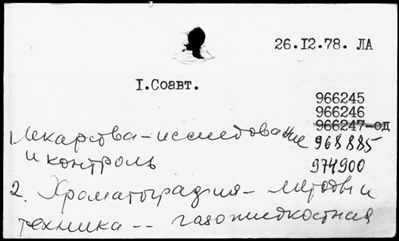 26.I2.78. ЛА
I.Соавт.
966245
966246
966247-од
1. Лекарства – исследование 968885
и контроль 974900
2. Хроматография – методы и
техника -- газожидкостная